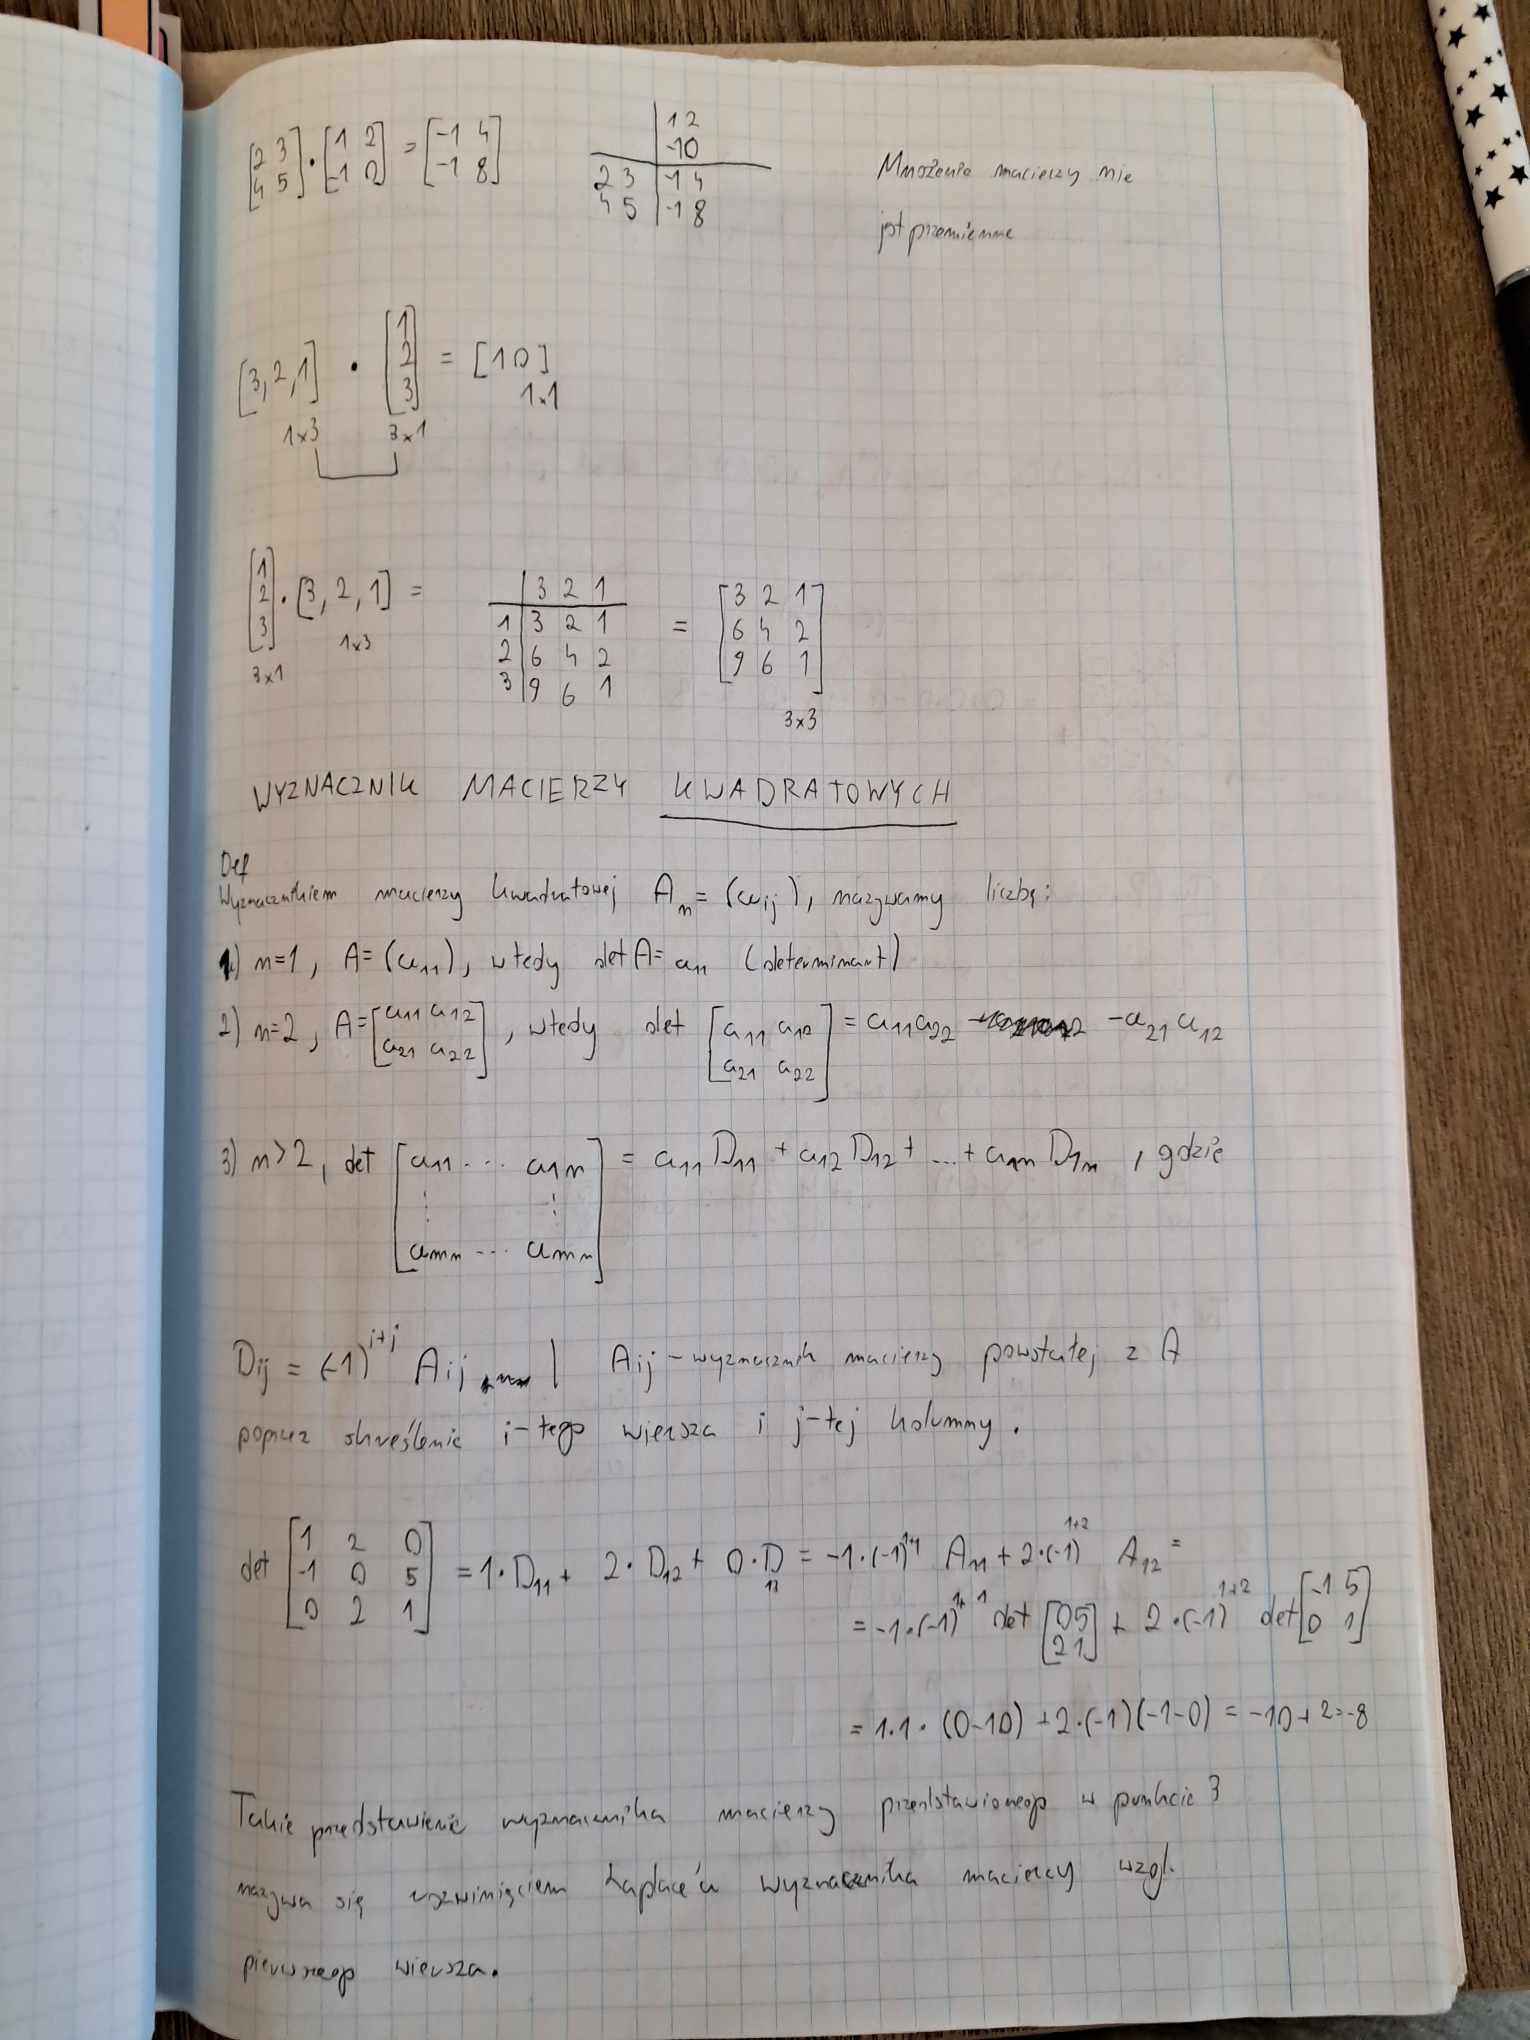 [2 3 4 5] · [1 2 -1 0] = [-1 4 -1 8]
1 2
-1 0
2 3 | -1 4
4 5 | -1 8
Mnożenie macierzy nie
jest przemienne
[3, 2, 1] · [1 2 3] = [10]
1x3 3x1 1x1
[1 2 3] · [3, 2, 1] =
3x1 1x3
3 2 1
1 | 3 2 1
2 | 6 4 2
3 | 9 6 1
= [3 2 1
6 4 2
9 6 1]
3x3
WYZNACZNIK MACIERZY KWADRATOWYCH
Def
Wyznacznikiem macierzy kwadratowej An = (aij), nazywamy liczbę:
1) n=1, A = (a11), wtedy det A = a11 (determinant)
2) n=2, A = [a11 a12 a21 a22], wtedy det [a11 a12 a21 a22] = a11 a22 - a21 a12
3) n>2, det [a11 ... a1n
⋮ ⋮
amn ... amn] = a11 D11 + a12 D12 + ... + a1n D1n, gdzie
Dij = (-1)^i+j Aij | Aij - wyznacznik macierzy powstałej z A
poprzez skreślenie i-tego wiersza i j-tej kolumny.
det [1 2 0
-1 0 5
0 2 1] = 1·D11 + 2·D12 + 0·D13 = -1·(-1)^1+1 A11 + 2·(-1)^1+2 A12 =
= -1·(-1)^1+1 det [0 5 2 1] + 2·(-1)^1+2 det [-1 5 0 1]
= 1·1·(0-10) + 2·(-1)(-1-0) = -10+2=-8
Takie przedstawienie wyznacznika macierzy przedstawionego w punkcie 3
nazywa się rozwinięciem Laplace'a wyznacznika macierzy wzgl.
pierwszego wiersza.